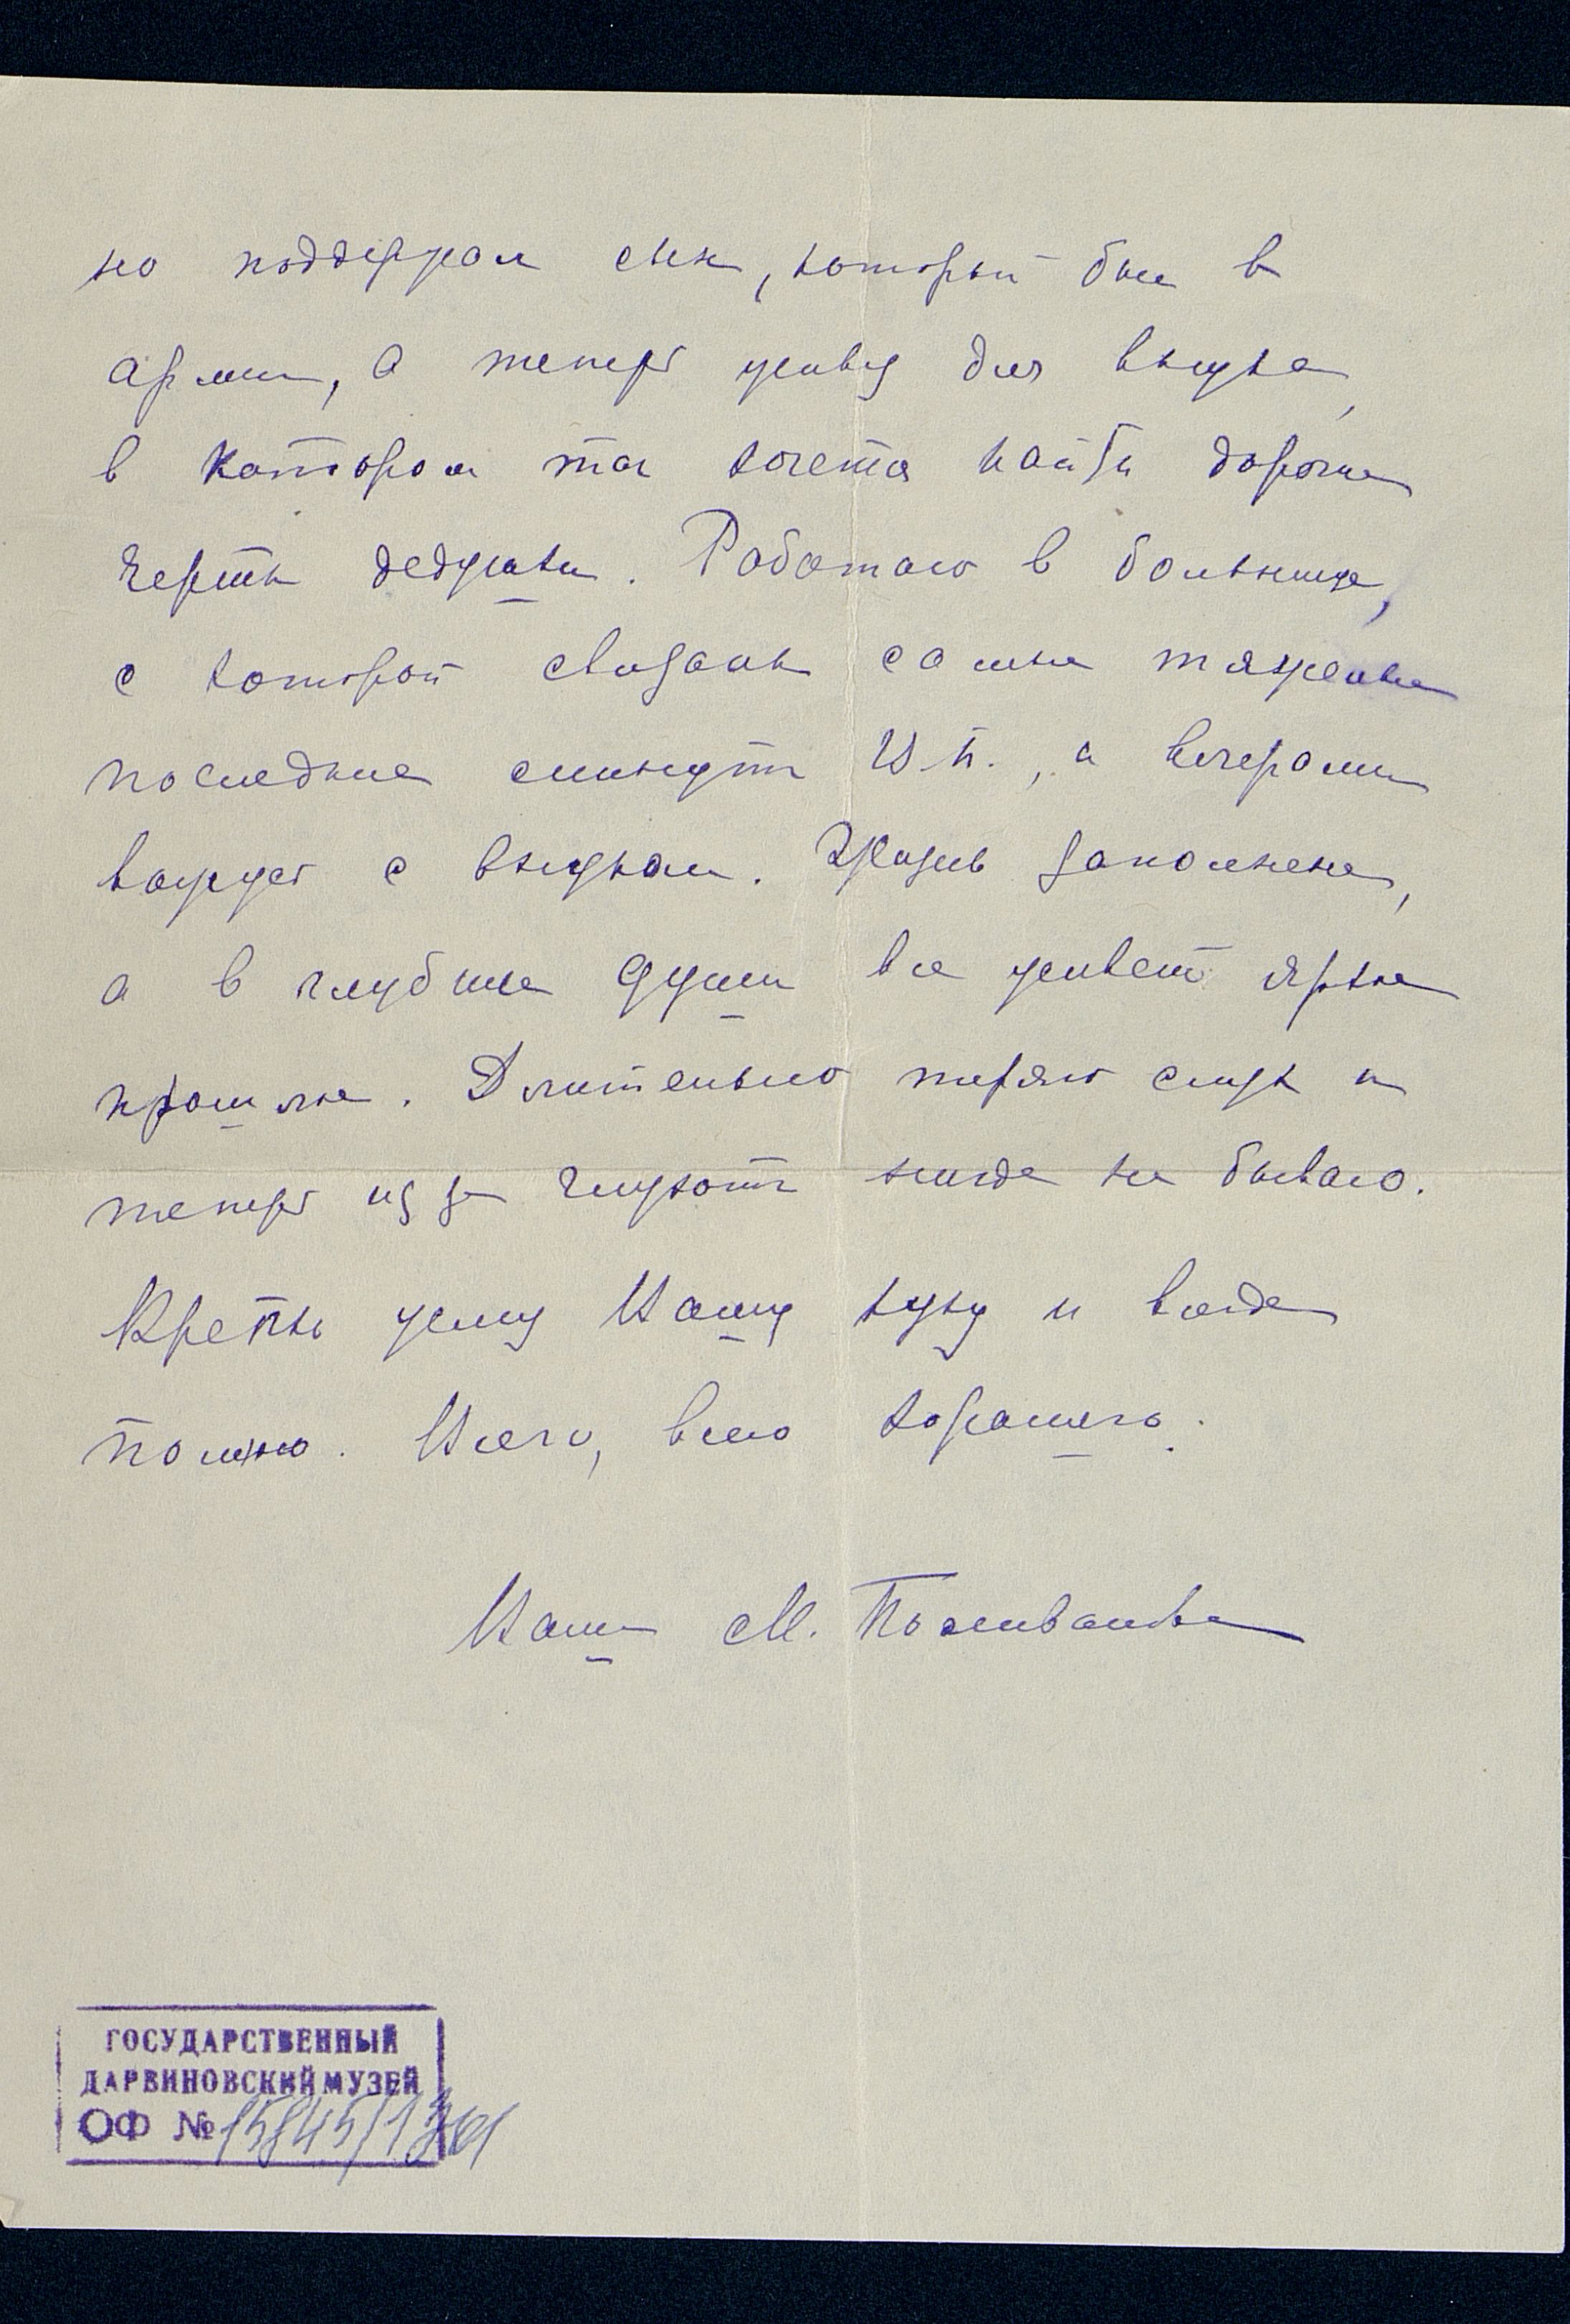 но поддержал сын, который был в
армии, а теперь живу для внука,
в котором так хочется найти дорогие
черты дедушки. Работаю в больнице,
с которой связаны самые тяжелые
последние минуты И.П., а вечерами
вожусь с внуком. Жизнь заполнена,
а в глубине души все живет яркое
прошлое. Длительно теряю слух и
теперь из за глухоты нигде не бываю.
Крепко жму Вашу руку и всегда
помню. Всего, всего хорошего.
Ваша М.
ГОСУДАРСТВЕННЫЙ
ДАРВИНОВСКИЙ МУЗЕЙ
ОФ №